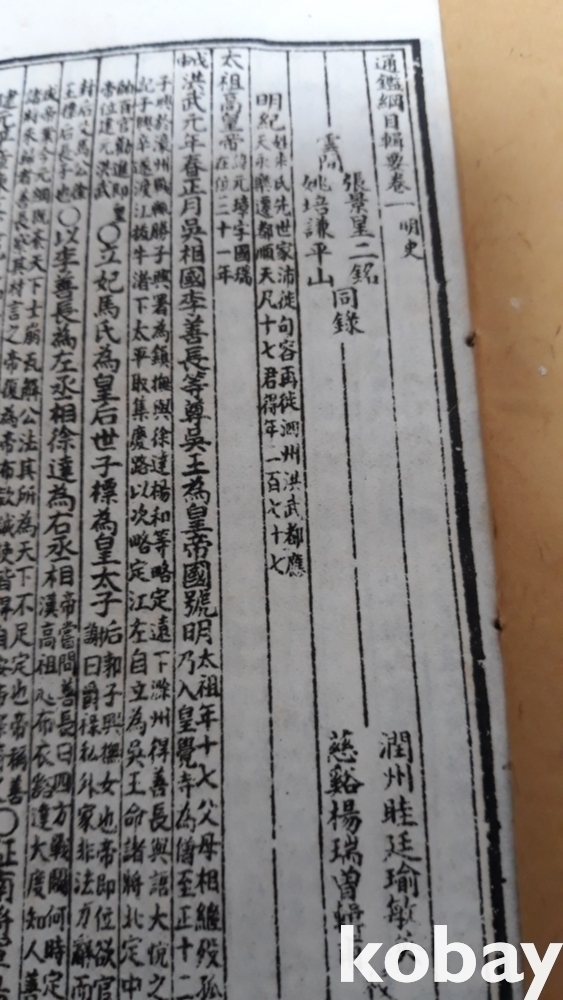 通鑑綱目輯要卷一 明史
雲間
張景星二銘
姚培謙平山
同錄
潤州眭廷瑜敏
慈谿楊瑞曾
明紀
姓朱氏先世家沛徙句容再徙泗州洪武都應
天永樂遷都順天凡十七君得年二百七十七
太祖高皇帝
諱元璋字國瑞
在位三十一年
洪武元年春正月吳相國李善長等尊吳王為皇帝國號明
太祖年十七父母相繼歿孤
乃入皇覺寺為僧至正十二
子興於濠州戰輒勝子興署為鎮撫與徐達楊和等略定遠下滁州得善長與語大悅之
記子興卒遂渡江拔牛渚下太平取集慶路以次略定江左自立為吳王命諸將北定中
百官勸進即皇
帝位建元洪武
○立妃馬氏為皇后世子標為皇太子
后郭子興撫女也帝即位欲官
謝曰爵祿私外家非法力辭而
封后父馬公徐
王標后長子也
○以李善長為左丞相徐達為右丞相
帝嘗問善長曰四方戰鬪何時定
漢高祖起布衣豁達大度知人善
成帝業今元綱既紊天下土崩瓦解公法其所為天下不足定也帝稱善
○征南將軍
kobay